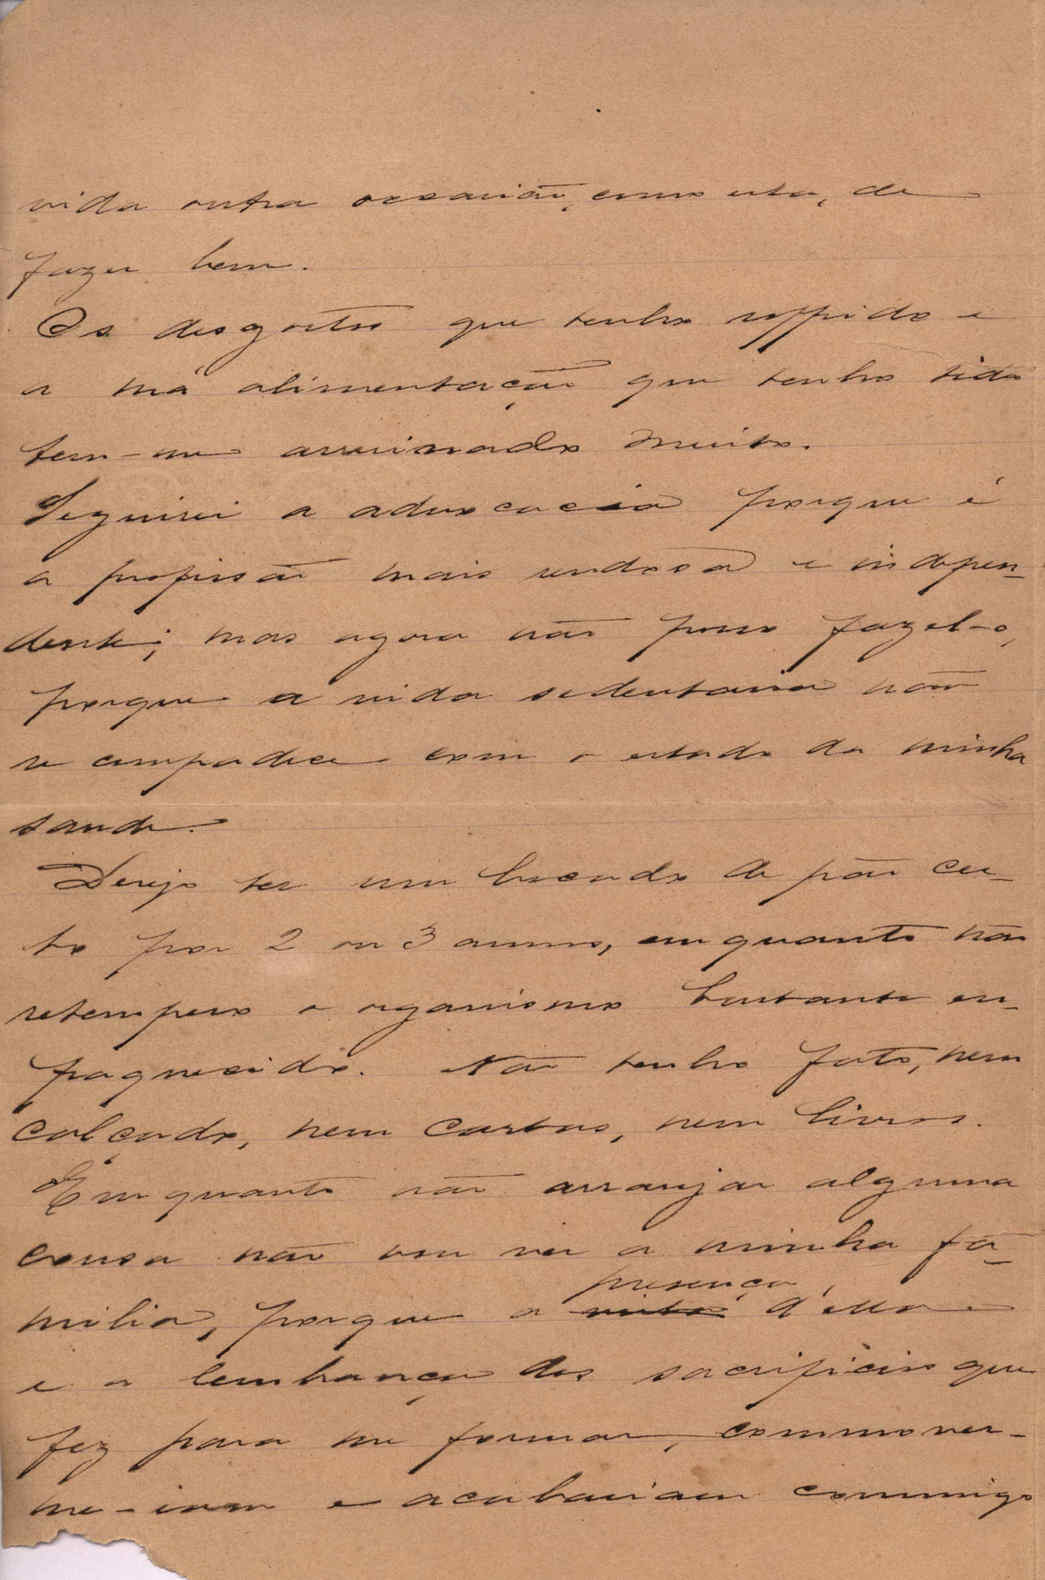 vida outra occasião, como esta, de
fazer bem.
Os desgostos que tenho soffrido e
a má alimentação que tenho tido
tem-me arruinado muito.
Seguirei a advocacia porque é
a profissão mais rendosa e indepen-
dente; mas agora não posso fazel-o,
porque a vida sedentaria não
se compadece com o estado da minha
saude.
Desejo ter um bocado de pão cer-
to por 2 ou 3 annos, emquanto não
retempero o organismo bastante en-
fraquecido. Não tenho fato, nem
calçado, nem cartas, nem livros.
Emquanto não arranjar alguma
cousa não vou ver a minha fa-
presença
milia, porque a vista d'ella e
e a lembrança dos sacrificios que
fez para me formar, commover-
me-iam e acabariam commigo